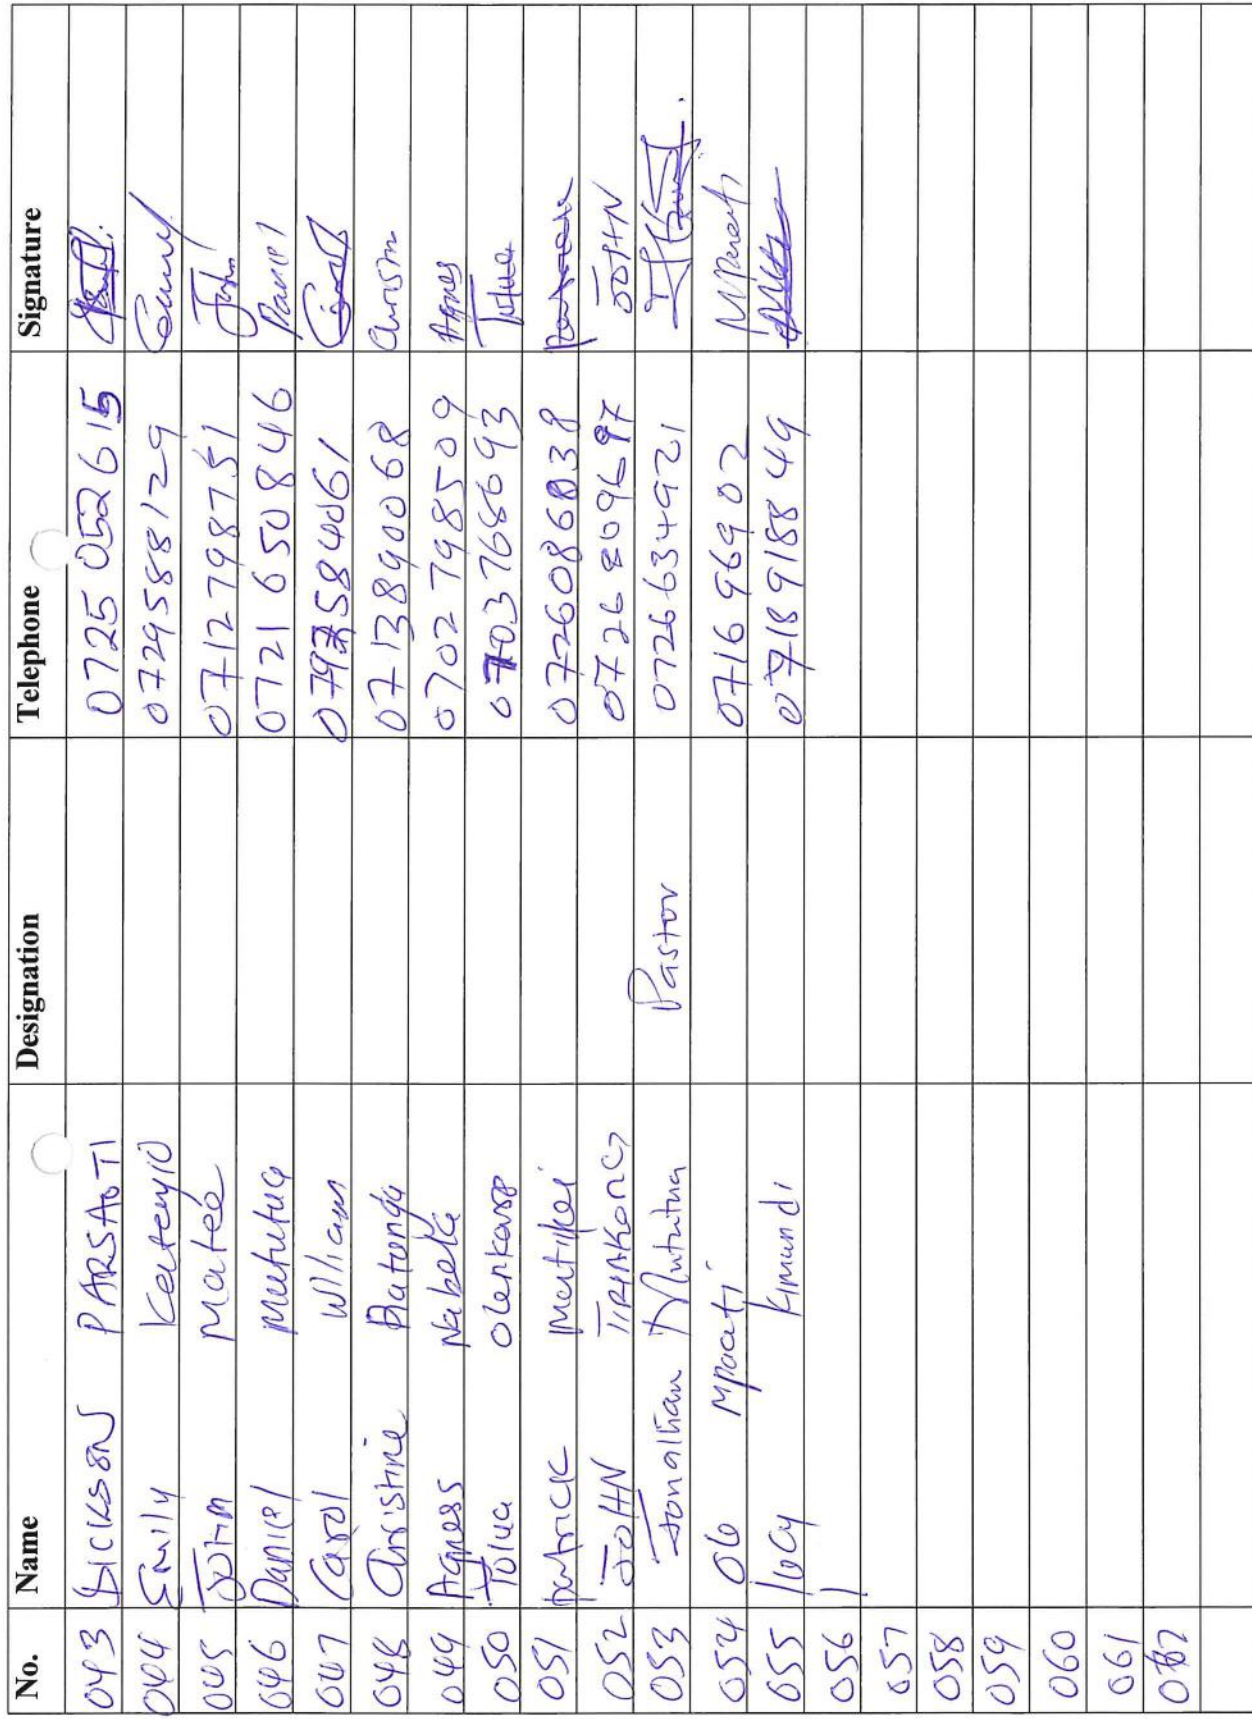 No. Name Designation Telephone Signature
043 DICKSON PARSAOTI 0725 052615
044 Emily Keteyio 0729588129 Emily
045 JOHN Matee 0712798751 John
046 Daniel Mututua 0721 650846 Daniel
047 Carol William 0797584061 Carol
048 Christine Batonga 0713890068 Chrism
049 Agness Nabela 0702798509 Agnes
050 Tolua Olenkasp 0703768693 Tolua
051 patrick 0726086038
052 JOHN TIRAKONG 0726809697 JOHN
053 Jonathan Mututua Pastor 0726634921
054 Ole Mpaati 071696902 MPaati
055 Lucy Kimundi 0718918849
056
057
058
059
060
061
062